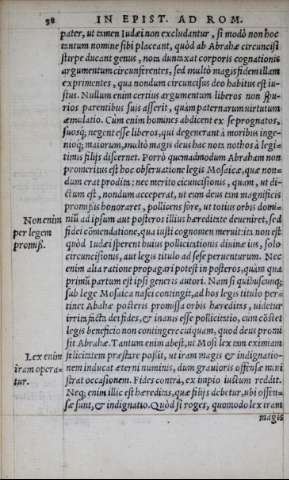 98 IN EPIST. AD ROM.
pater, ut tamen Iudæi non excludantur, si modò non hoc
tantum nomine sibi placeant, quòd ab Abrahæ circuncisi
stirpe ducant genus, non duntaxat corporis cognationis
argumentum circunferentes, sed multò magis fidem illam
exprimentes, qua nondum circuncisus deo habitus est iu-
stus. Nullum enim certius argumentum liberos non spu-
rios parentibus suis asserit, quàm paternarum uirtutum
æmulatio. Cùm enim homines abdicent ex se prognatos,
suosq; negent esse liberos, qui degenerant à moribus inge-
nioq; maiorum, multò magis deus hac nota nothos à legi-
timis filijs discernet. Porrò quemadmodum Abraham non
promeritus est hoc obseruatione legis Mosaicæ, quæ non-
dum erat prodita: nec merito circuncisionis, quam, ut di-
ctum est, nondum acceperat, ut eum deus tam magnificis
promissis honoraret, pollicens fore, ut totius orbis domi-
Non enim nium ad ipsum aut posteros illius hæreditate deueniret, sed
per legem fidei cōmendatione, qua iusti cognomen meruit: ita non est
promiss. quòd Iudæi sperent huius pollicitationis diuinæ ius, solo
circuncisionis, aut legis titulo ad sese peruenturum. Nec
enim alia ratione propagari potest in posteros, quàm qua
primùm partum est ipsi generis autori. Nam si quibuscunq;
sub lege Mosaica nasci contingit, ad hos legis titulo per-
tinet Abahæ posteris promissa orbis hæreditas, uidetur
irrita facta dei fides, & inanis esse pollicitatio, cum cōstet
legis beneficio non contingere cuiquam, quod deus promi
sit Abrahæ. Tantum enim abest, ut Mosi lex tam eximiam
Lex enim felicitatem præstare possit, ut iram magis & indignatio-
iram opera- nem inducat æterni numinis, dum grauioris offensæ mini
tur. strat occasionem. Fides contrà, ex impio iustum reddit.
Neq; enim illic est hæreditas, quæ filijs debetur, ubi offen-
sæ sunt, & indignatio. Quòd si roges, quomodo lex iram
magis